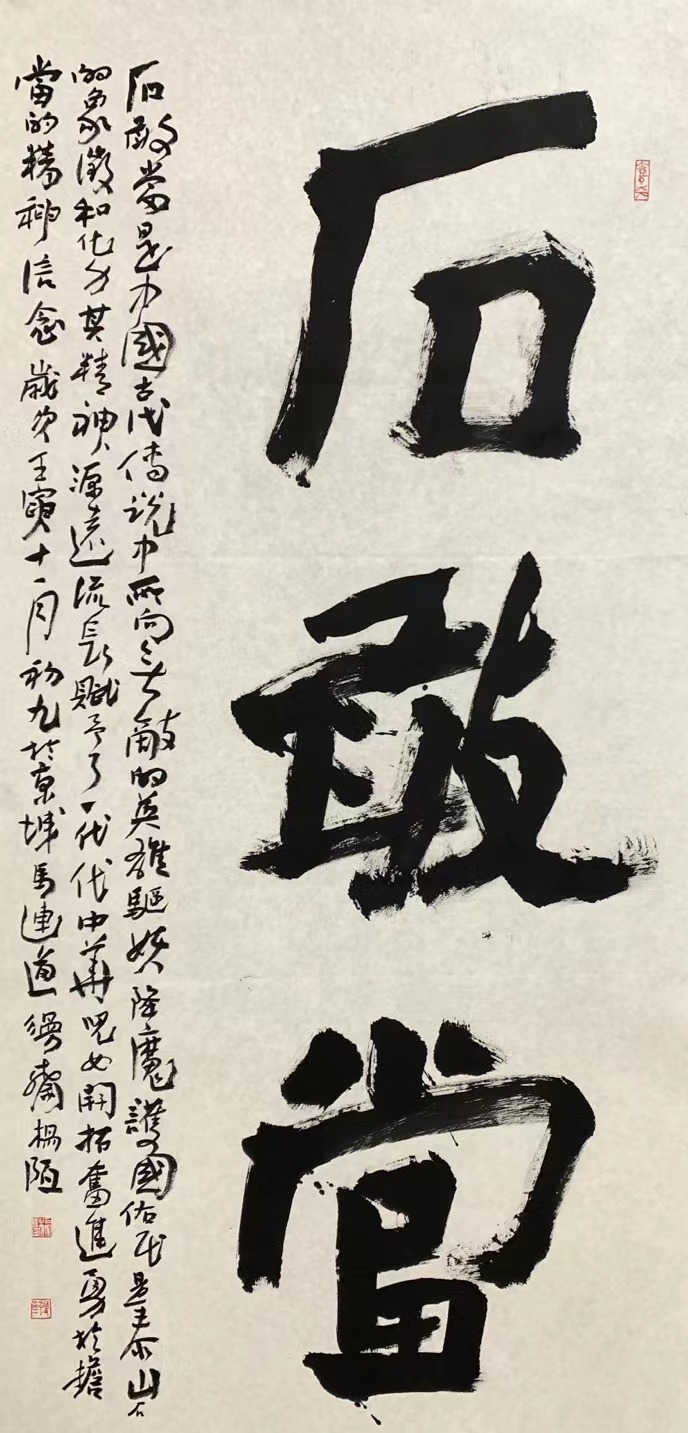 石敢當
石敢當是中國古代傳說中所向無敵的英雄驅妖降魔護國佑民是泰山石
的象徵和化身其精神源遠流長賦予了一代代中華兒女開拓奮進勇於擔
當的精神信念歲次壬寅十一月初九於京城馬連道